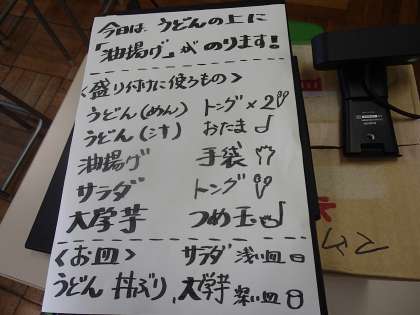 今日は、うどんの上に
「油揚げ」がのります!
<盛り付けに使うもの>
うどん(めん) トング×2
うどん(汁) おたま
油揚げ 手袋
サラダ トング
大学芋 つめ玉
<お皿> サラダ 浅い皿
うどん 丼ぶり、大学芋 深い皿